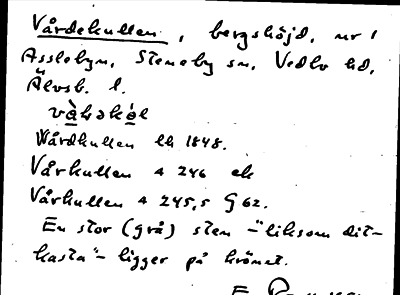 Vårdekullen, bergshöjd, nr 1
Asslebyn, Steneby sn, Vedbo hd,
Älvsb. l.
Wårdkullen lh 1848.
Vårkullen 4 246 ek
Vårkullen 4 245,5 G 62.
En stor (grå) sten -"liksom dit-
kasta"- ligger på krönet.